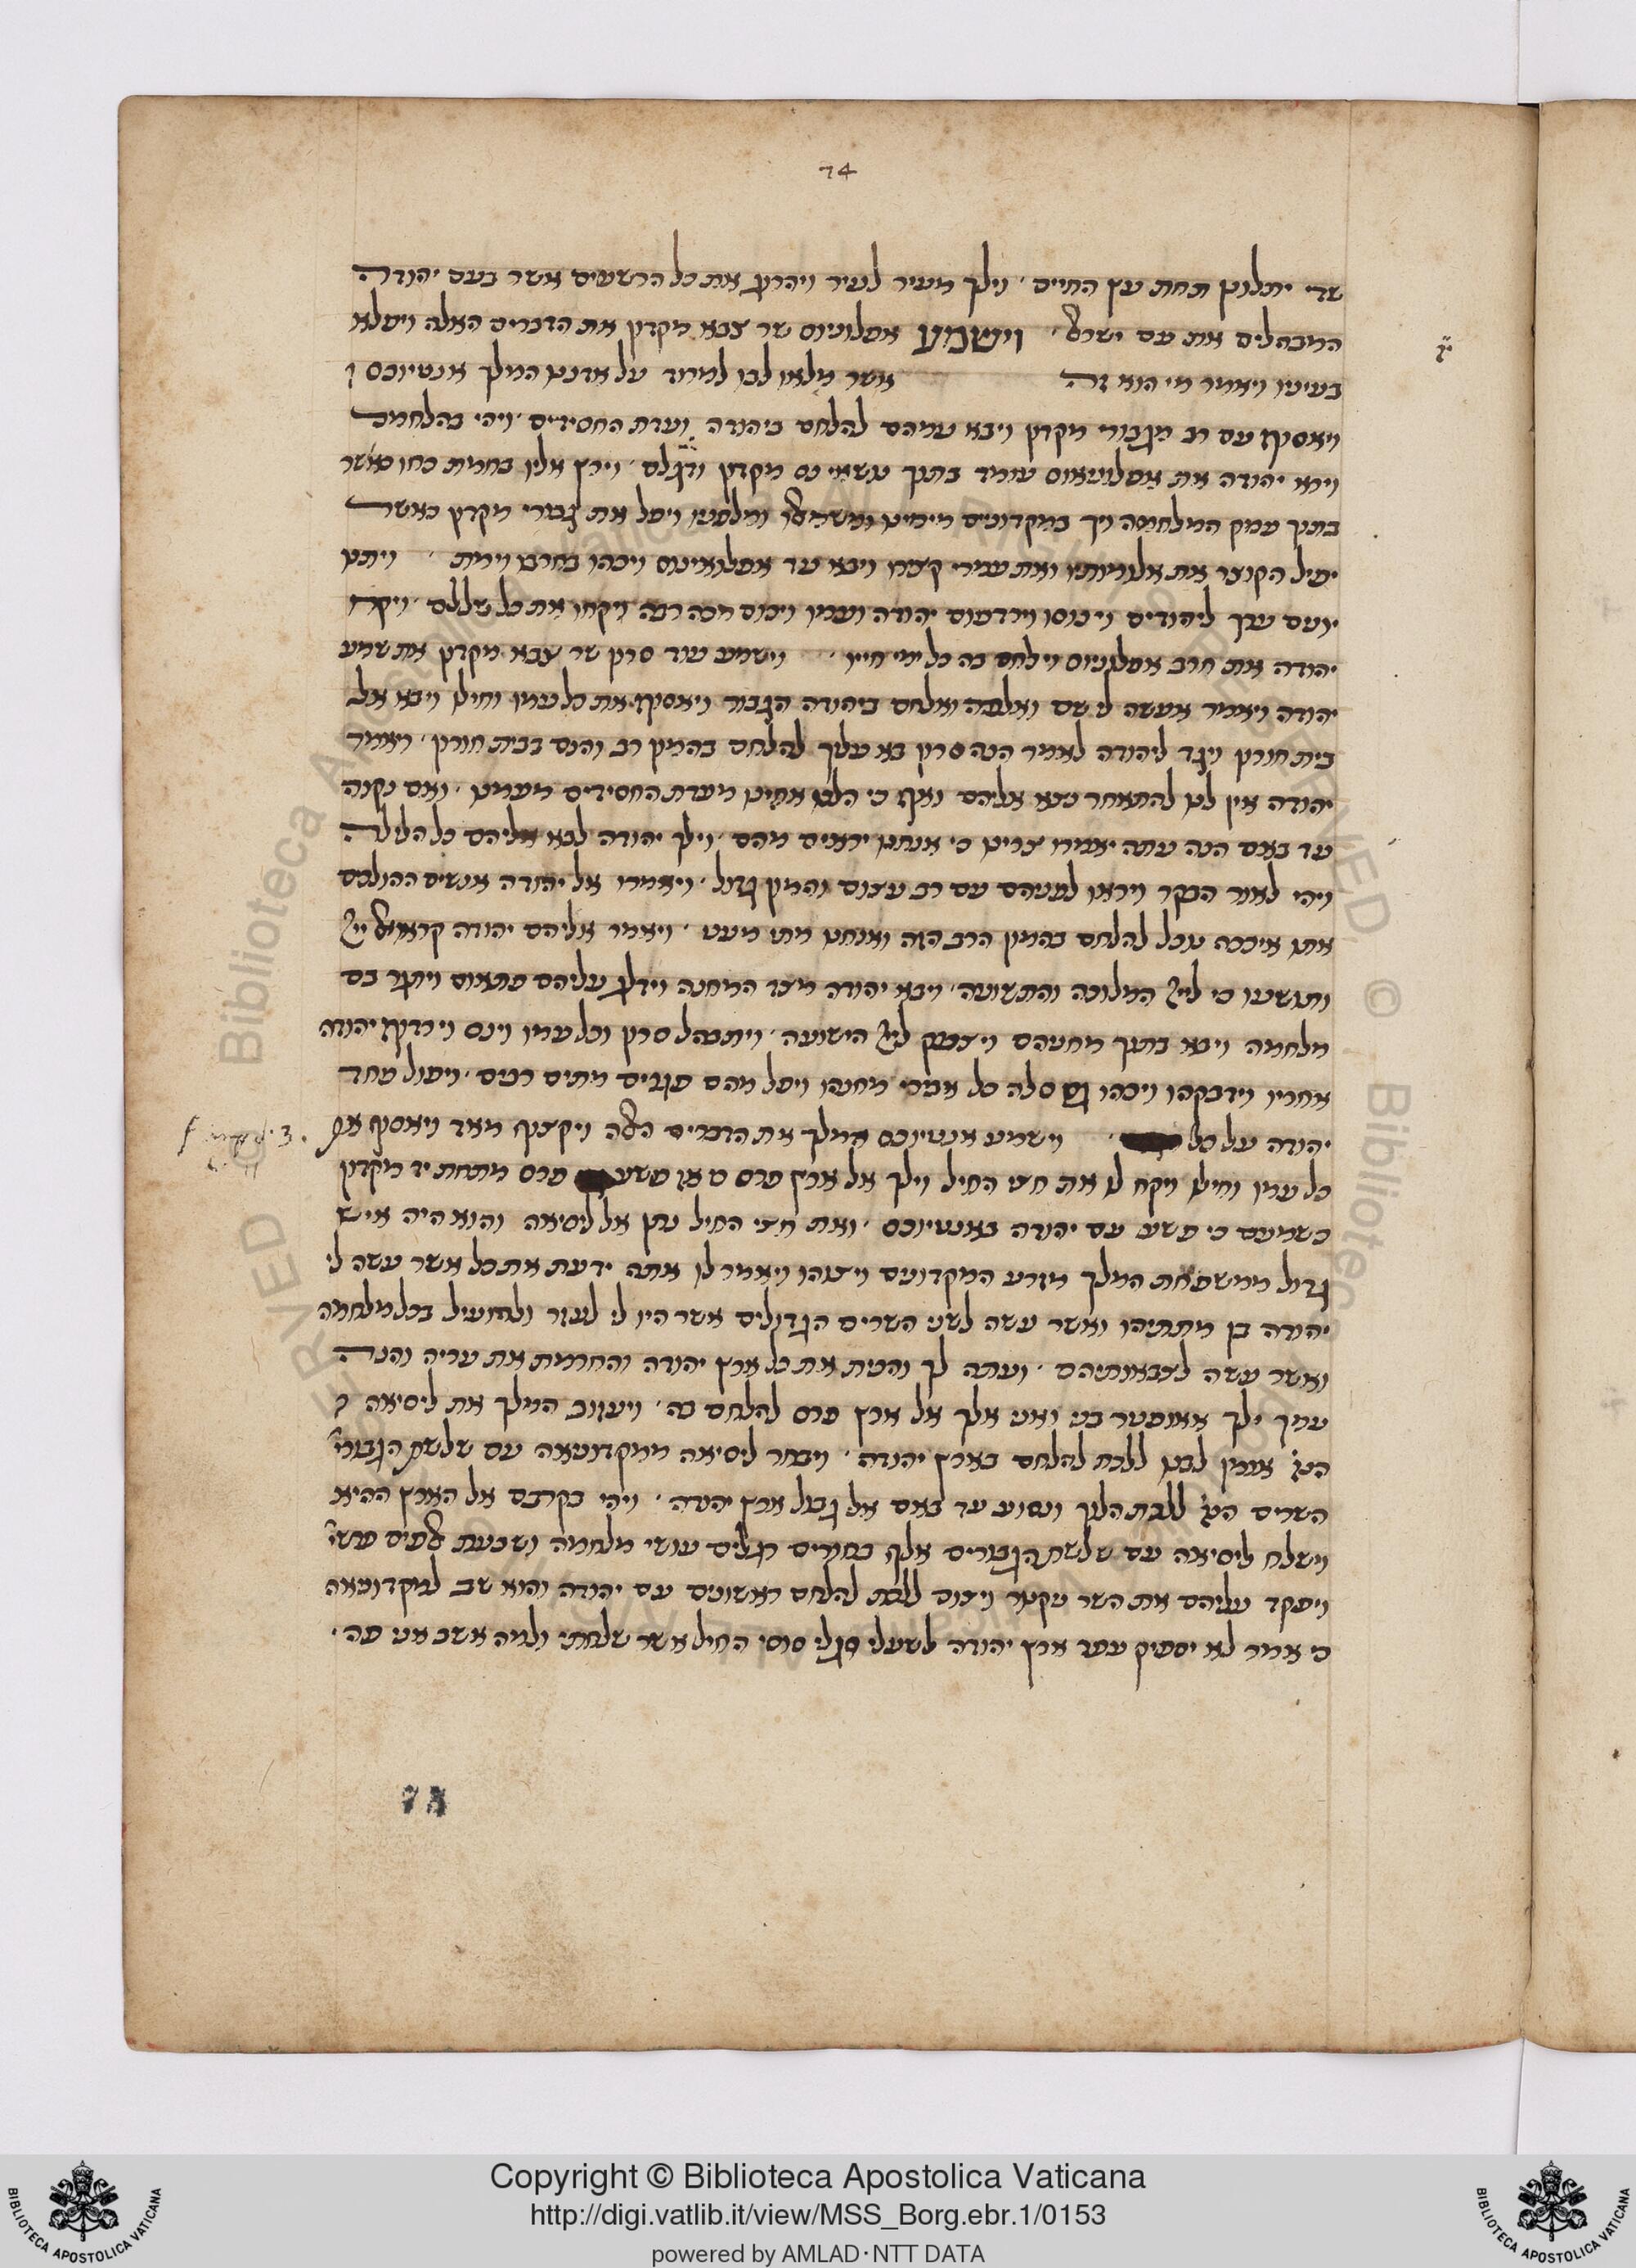 74
שדי יתלונן תחת עץ החיים וילך מעיר לעיר ויהרוג את כל הרשעים אשר בעם יהודה
המבהלים את עם ישר׳ וישמע אפלוניוס שר צבא מקדון את הדברים האלה ויפלא
בעיניו ויאמר מי הוא זה אשר מלאו לבו למרוד על אדננו המלך אנטיוכס
ויאסוף עם רב מגבורי מקדון ויבא עמהם להלחם ביהודה ועדת החסידים ויהי בהלחמם
וירא יהודה את אפלוניאוס עומד בתוך מקדון ודגלם וירץ אליו בחמת כחו כאשר
בתוך עמק המלחמה ויך במקדונים מימינו ומשמאלו ומלפניו ויפל את גבורי מקדון כאשר
יפיל הקוצר את אלומותיו ואת עמירי קצירו ויבא עד אפלואינוס ויכהו בחרבו וימת ויתנו
יונים ערף ליהודים וינוסו וירדפום יהודה ועמו ויכום מכה רבה ויקחו את כל שללם ויקח
יהודה את חרב אפלוניוס וילחם בה כל ימי חייו וישמע עוד סרון שר צבא מקדון את שמע
יהודה ויאמר אעשה לי שם ואלכה ואלחם ביהודה הגבור ויאסוף את כל עמו וחילו ויבא אל
בית חורון ויגד ליהודה לאמר הנה סרון בא עליך להלחם בהמון רב והנם בבית חורון ויאמר
יהודה אין לנו להתאחר מבא אליהם ואף כי הלכו אחינו מעדת החסידים מעמנו ואם נקוה
עד באם הנה עתה יאמרו צרינו כי אנחנו יראים מהם וילך יהודה לבא אליהם כל הלילה
ויהי לאור הבקר ויראו לפניהם עם רב עצום והמון גדול ויאמרו אל יהודה אנשים ההולכים
אתו איככה נוכל להלחם בהמון הרב הזה ואנחנו מתי מעט ויאמר אליהם יהודה קראו אל ייי
ותושעו כי לייי המלוכה והתשועה ויבא יהודה מצד המחנה וידלג עליהם פתאום ויתגר בם
מלחמה ויבא בתוך מחניהם ויצעק לייי הישועה ויתבהל סרון וכל עמו וינס וירדוף יהודה
אחריו וידבקהו ויכהו סלה כל אבירי מחנהו ויפל מהם פגרים מתים רבים ויפול פחד
יהודה על כל וישמע אנטיוכס המלך את הדברים האלה ויקצוף מאד ויאסוף את
כל עמו וחילו ויקח לו את חצי החיל וילך אל ארץ פרס פרס מתחת יד מקדון
כשמעם כי פשע עם יהודה באנטיוכס ואת חצי החיל נתן אל ליסיאה והוא היה איש
גדול ממשפחת המלך מזרע המקדונים ויצוהו ויאמר לו אתה ידעת את כל אשר עשה לי
יהודה בן מתתיהו ואשר עשה לשני השרים הגדולים אשר היו לי לעזר ולהועיל בכל מלחמה
ואשר עשה לצבאותיהם ועתה לך והכית את כל ארץ יהודה והחרמת את עריה והנה
עמך ילך אאופטר בני ואני אלך אל ארץ פרס להלחם בה ויעזוב המלך את ליסיאה
לבנו ללכת להלחם בארץ יהודה ויבחר ליסיאה ממקדוניאה עם שלשת הגבורי׳
השרים ללכת הלוך ונסוע עד באם אל גבול ארץ יהודה ויהי בקרבם אל הארץ ההיא
וישלח ליסיאה עם שלשת הגבורים אלף בחורים רגלים עושי מלחמה ושבעת אלפים פרשי׳
ויפקד עליהם את השר ניקנור ויצום ללכת להלחם ראשונים עם יהודה והוא שב למקדוניאה
כי אמר לא יספיק עפר ארץ יהודה לשעלי רגלי סוסי החיל אשר שלחתי ולמה אשב אני פה
Copyright © Biblioteca Apostolica Vaticana
http://digi.vatlib.it/view/MSS_Borg.ebr.1/0153
powered by AMLAD·NTT DATA